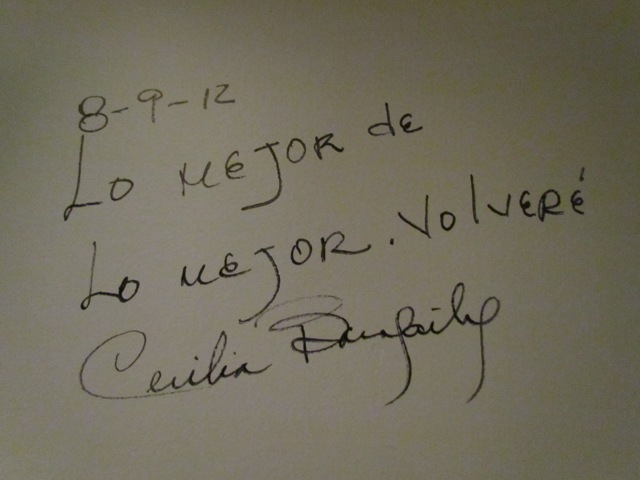 8-9-12
Lo mejor de
Lo mejor. Volveré
Cecilia